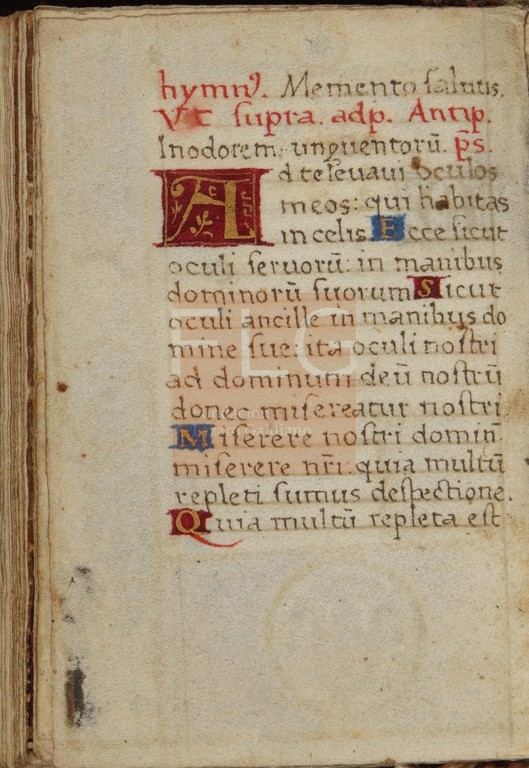 hymnꝰ. Memento salutis.
Vt supra. adp. Antip.
Inodorem. unguentorū. p̄s.
Ad te levavi oculos
meos: qui habitas
in celis Ecce sicut
oculi servorū: in manibus
dominorū suorum Sicut
oculi ancille in manibus do
mine sue: ita oculi nostri
ad dominum deū nostrū
donec misereatur nostri
Miserere nostri domin̄
miserere nr̄i. quia multū
repleti sumus despectione.
Quia multū repleta est
FLG